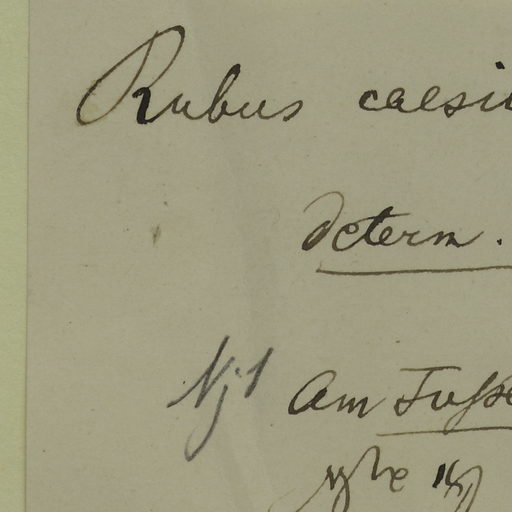 Rubus caesiu
determ.
Am Fusse